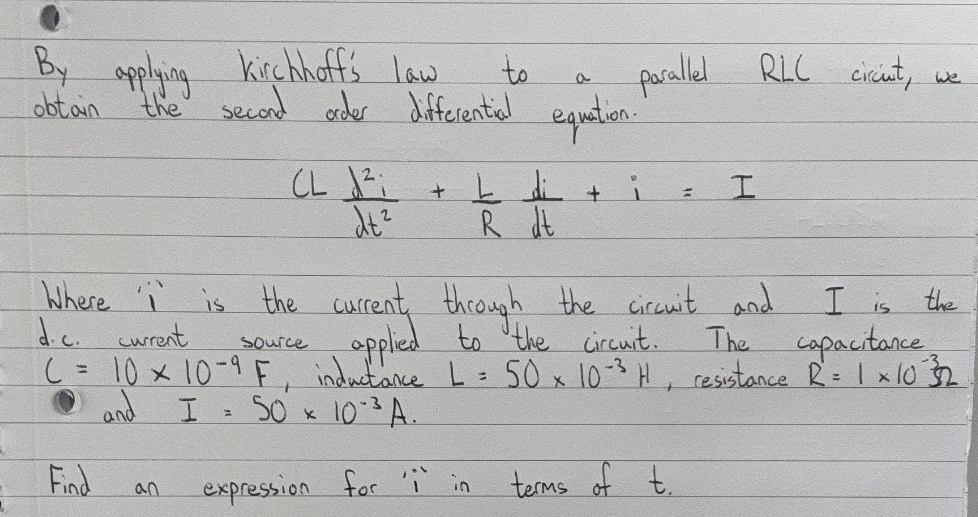 By applying Kirchhoff's law to a parallel RLC circuit, we
obtain the second order differential equation.
CL d²i/dt² + L/R di/dt + i = I
Where 'i' is the current, through the circuit and I is the
d.c. current source applied to the circuit. The capacitance
C = 10 × 10⁻⁹ F, inductance L = 50 × 10⁻³ H, resistance R = 1 × 10⁻³Ω
and I = 50 × 10⁻³ A.
Find an expression for 'i' in terms of t.